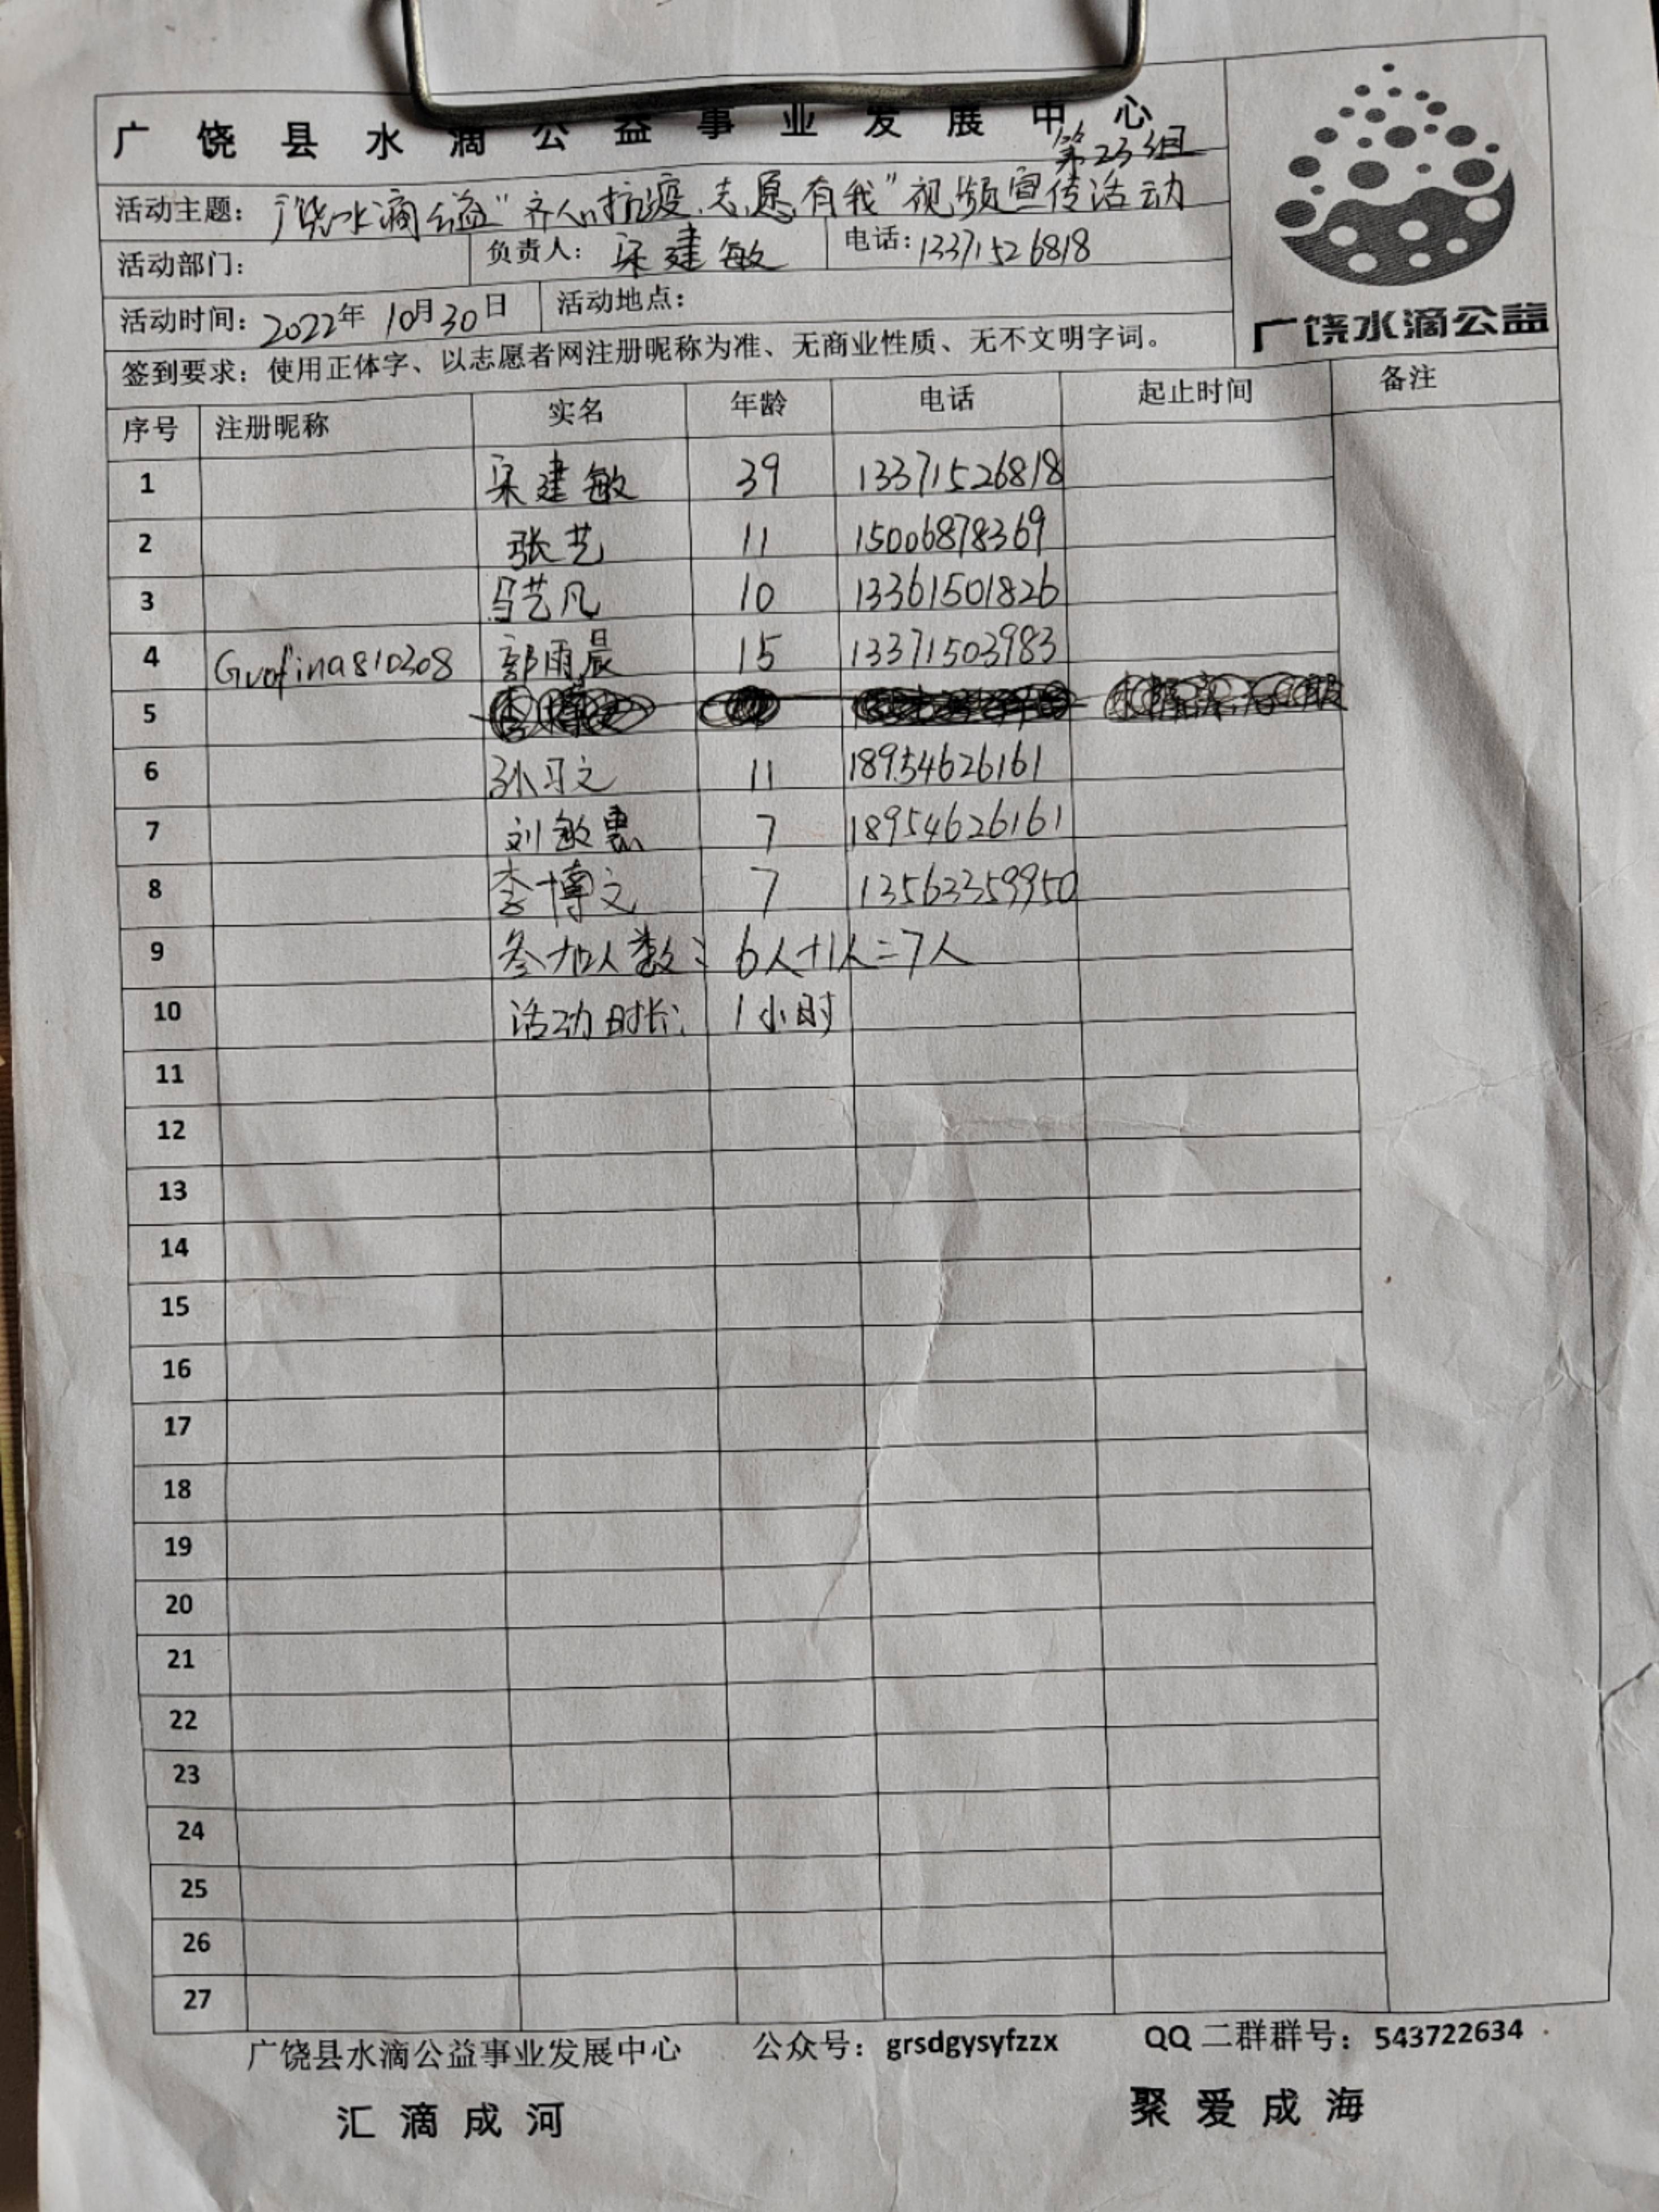 广饶县水滴公益事业发展中心
第23组
活动主题: 广饶水滴公益"齐心抗疫、志愿有我"视频宣传活动
活动部门: 负责人: 宋建敏 电话: 13371526818
活动时间: 2022年 10月30日 活动地点:
签到要求: 使用正体字、以志愿者网注册昵称为准、无商业性质、无不文明字词。
广饶水滴公益
序号 注册昵称 实名 年龄 电话 起止时间 备注
1 宋建敏 39 13371526818
2 张艺 11 15006878369
3 马艺凡 10 13361501826
4 Guofina810208 郭雨晨 15 13371503983
5
6 孙习文 11 18954626161
7 刘敏惠 7 18954626161
8 李博文 7 13563359950
9 参加人数: 6人+1人=7人
10 活动时长: 1小时
11
12
13
14
15
16
17
18
19
20
21
22
23
24
25
26
27
广饶县水滴公益事业发展中心 公众号: grsdgysyfzzx QQ 二群群号: 543722634
汇滴成河 聚爱成海